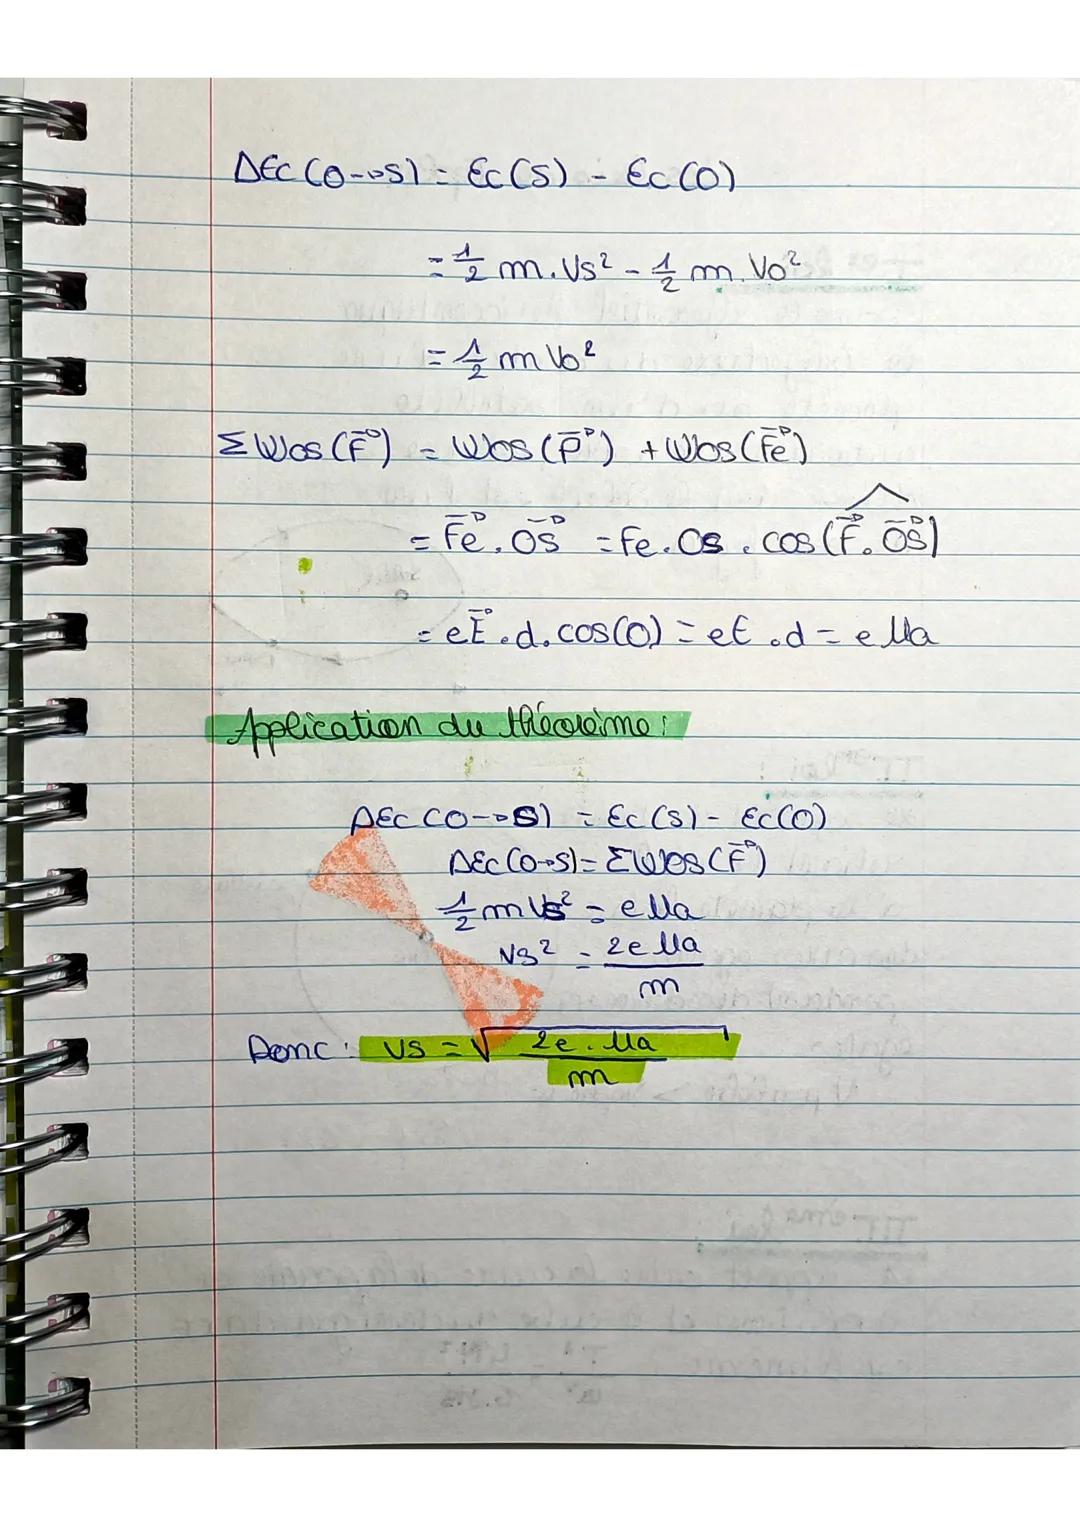 ΔEc (O→S) = Ec(S) - Ec(O)
= 1/2 m.Vs² - 1/2 m.Vo²
= 1/2 m Vo²
Σ Wos(F⃗) = Wos(P⃗) + Wos(F⃗e)
= F⃗e . O⃗S = Fe.Os . cos(F⃗.O⃗S)
= eE⃗.d.cos(0) = eE.d = eUa
Application du théorème :
ΔEc (O→S) = Ec(S) - Ec(O)
ΔEc (O→S) = ΣWos(F⃗)
1/2 mVs² = eUa
Vs² = 2eUa/m
Donc : Vs = √(2e.Ua/m)